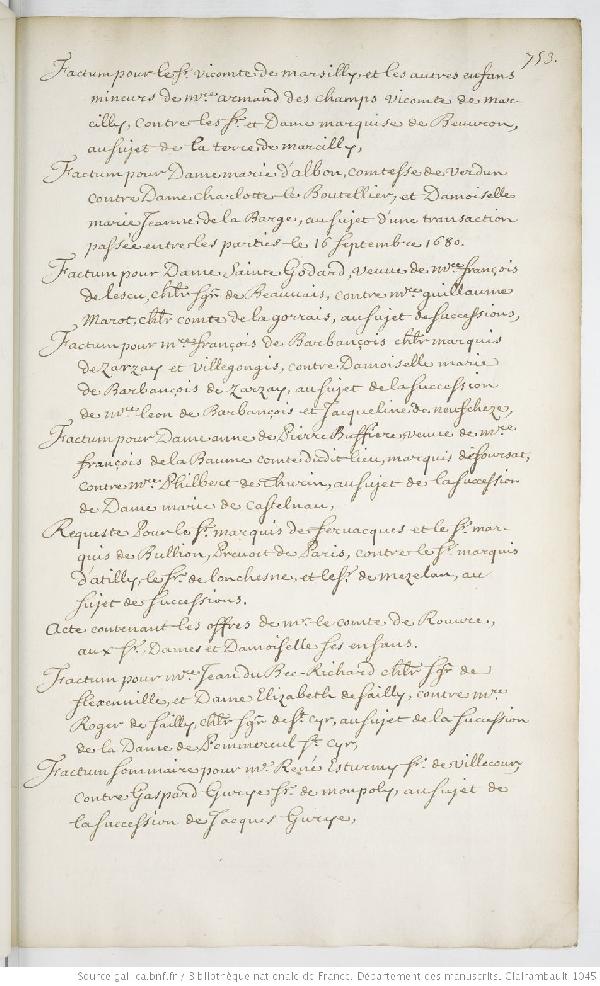 753.
Factum pour le Sr. vicomte de marsilly, et les autres enfans
mineurs de mre. armand des champs vicomte de mar-
cilly, contre les Sr. et Dame marquise de Beuvron,
au sujet de la terre de marcilly,
Factum pour Dame marie d'albon, comtesse de verdun
contre Dame charlotte le Boutellier, et Damoiselle
marie Jeanne de la Barge, au sujet d'une transaction
passée entre les parties le 16 septembre 1680.
Factum pour Dame Sainte Godard, veuve de mre. françois
de lescu, chlr. sgr. de Beauvais, contre mre. guillaume
Marot, chlr. comte de la gorrais, au sujet de successions,
Factum pour mre. françois de Barbançois chlr. marquis
de zarzay et villegongis, contre Damoiselle marie
de Barbançois de zarzay, au sujet de la succession
de mre. leon de Barbançois et Jacqueline de neufcheze,
Factum pour Dame anne de Pierre Buffiere, veuve de mre.
françois de la Baume comte dudit lieu, marquis de foursat,
contre mre. Philbert de Thurin, au sujet de la succession
de Dame marie de Castelnau,
Requiste Pour le Sr. marquis de fervacques et le Sr. mar-
quis de Bullion, Prevost de Paris, contre le Sr. marquis
d'atilly, le Sr. de lonchesne, et le Sr. de mezelan, au
sujet de successions.
Acte contenant les offres de mr. le comte de Rouvre,
aux Srs. Dames et Damoiselle ses enfans.
Factum pour mre. Jean du Bec-Richard chlr. sgr. de
flexenville, et Dame Elizabeth de sailly, contre mre.
Roger de sailly, chlr. sgr. de St. Cyr, au sujet de la succession
de la Dame de Pommereuil St. Cyr,
Factum sommaire pour mr. René Esturmy Sr. de villecour,
contre Gaspard Gurye Sr. de monpoly, au sujet de
la succession de Jacques Gurye,
Source gallica.bnf.fr / Bibliothèque nationale de France. Département des manuscrits. Clairambault 1045